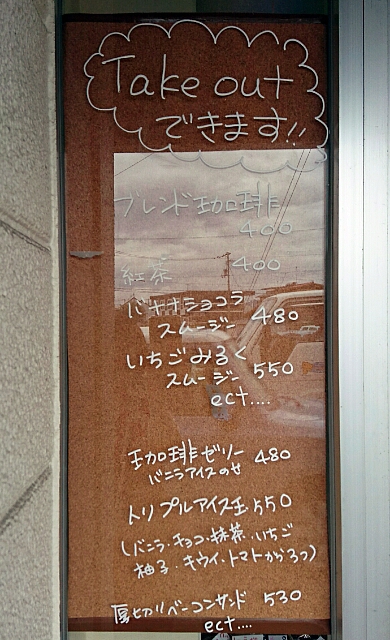 Take out
できます!!
ブレンド珈琲
400
紅茶 400
バナナショコラ
スムージー 480
いちごみるく
スムージー 550
ect....
珈琲ゼリー 480
バニラアイスのせ
トリプルアイス玉 550
(バニラ・チョコ・抹茶・いちご
柚子・キウイ・トマトから3つ)
厚切りベーコンサンド 530
ect....